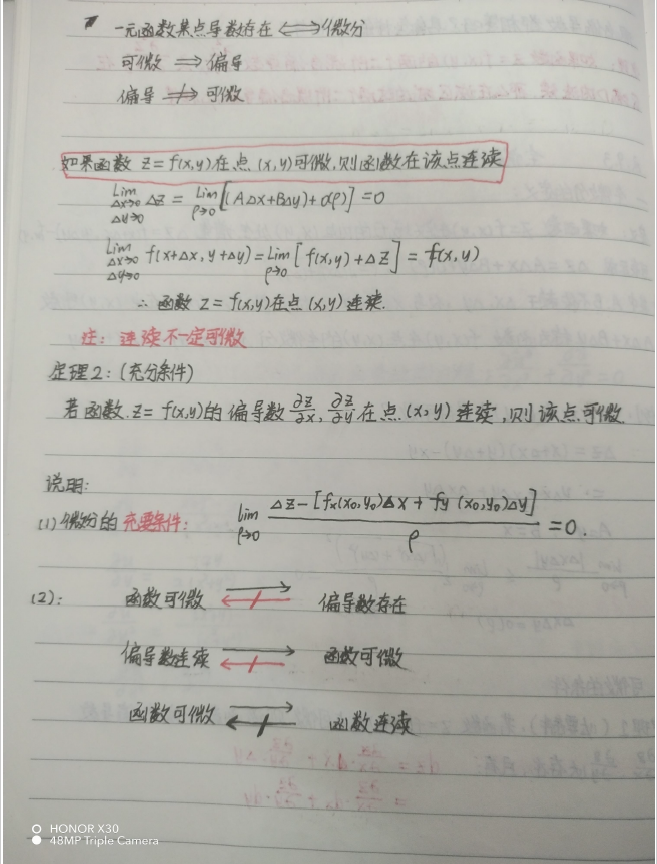 一元函数某点导数存在 ⟺ 微分
可微 ⟹ 偏导
偏导 ⇏ 可微
如果函数 z=f(x,y)在点 (x,y)可微,则函数在该点连续
lim Δx→0 Δy→0 Δz = lim ρ→0 [(AΔx+BΔy)+o(ρ)] =0
lim Δx→0 Δy→0 f(x+Δx, y+Δy)= lim ρ→0 [f(x,y)+Δz] = f(x,y)
∴ 函数 z=f(x,y)在点 (x,y)连续.
注: 连续不一定可微
定理2:(充分条件)
若函数.z=f(x,y)的偏导数 ∂z/∂x, ∂z/∂y 在点 (x,y) 连续,则该点可微
说明:
(1)微分的充要条件: lim ρ→0 Δz-[fx(x0,y0)Δx + fy (x0,y0)Δy] / ρ =0.
(2): 函数可微 → ↚ 偏导数存在
偏导数连续 → ↚ 函数可微
函数可微 → ↚ 函数连续
HONOR X30
48MP Triple Camera